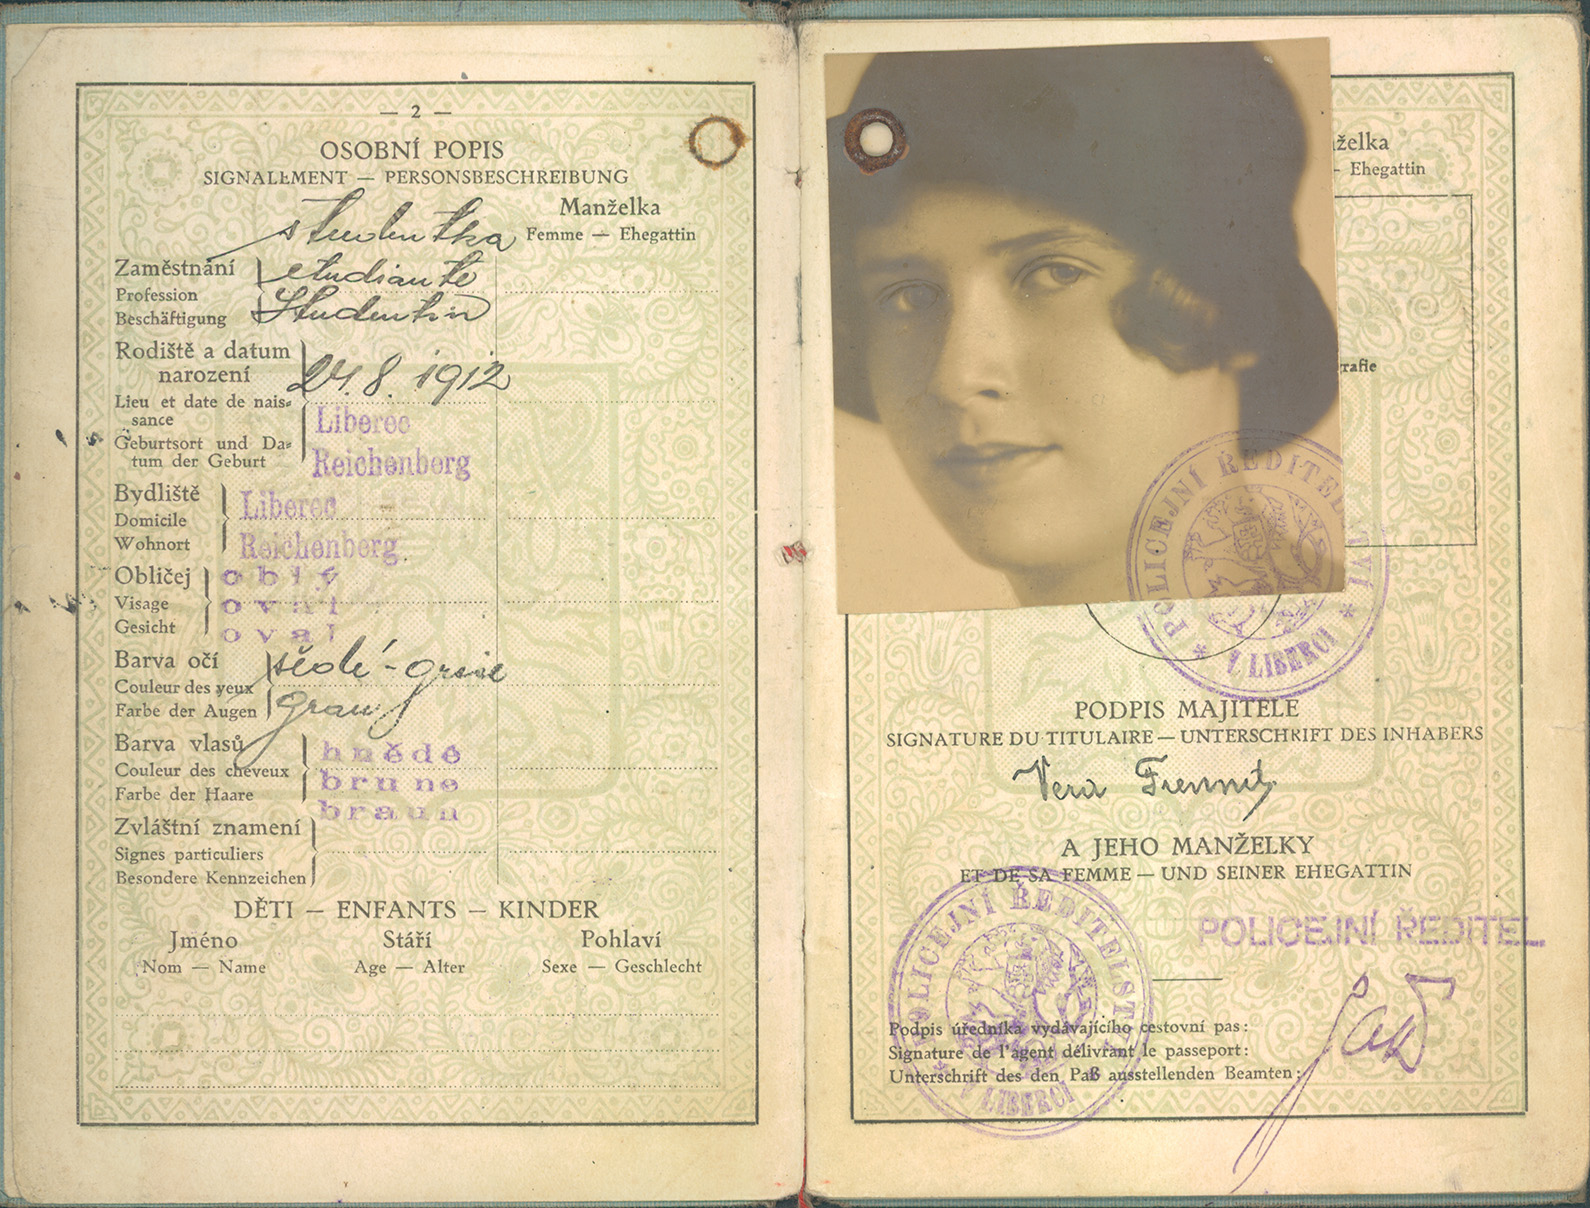 — 2 —
OSOBNÍ POPIS
SIGNALEMENT — PERSONSBESCHREIBUNG
Manželka
Femme — Ehegattin
studentka
Zaměstnání
etudiante
Profession
Studentin
Beschäftigung
Rodiště a datum
narození
24. 8. 1912
Lieu et date de nais=
sance
Liberec
Geburtsort und Da=
tum der Geburt
Reichenberg
Bydliště
Liberec
Domicile
Wohnort
Reichenberg
Obličej
oblý
Visage
oval
Gesicht
oval
Barva očí
šedé - grise
Couleur des yeux
Farbe der Augen
grau
Barva vlasů
hnědé
Couleur des cheveux
brune
Farbe der Haare
braun
Zvláštní znamení
Signes particuliers
Besondere Kennzeichen
DĚTI — ENFANTS — KINDER
Jméno Stáří Pohlaví
Nom — Name Age — Alter Sexe — Geschlecht
— Ehegattin
POLICEJNÍ ŘEDITELSTVÍ
* V LIBERCI *
PODPIS MAJITELE
SIGNATURE DU TITULAIRE — UNTERSCHRIFT DES INHABERS
Vera
A JEHO MANŽELKY
ET DE SA FEMME — UND SEINER EHEGATTIN
POLICEJNÍ ŘEDITELSTVÍ
* V LIBERCI
POLICEJNÍ ŘEDITEL
Podpis úředníka vydávajícího cestovní pas:
Signature de l'agent délivrant le passeport:
Unterschrift des den Paß ausstellenden Beamten: